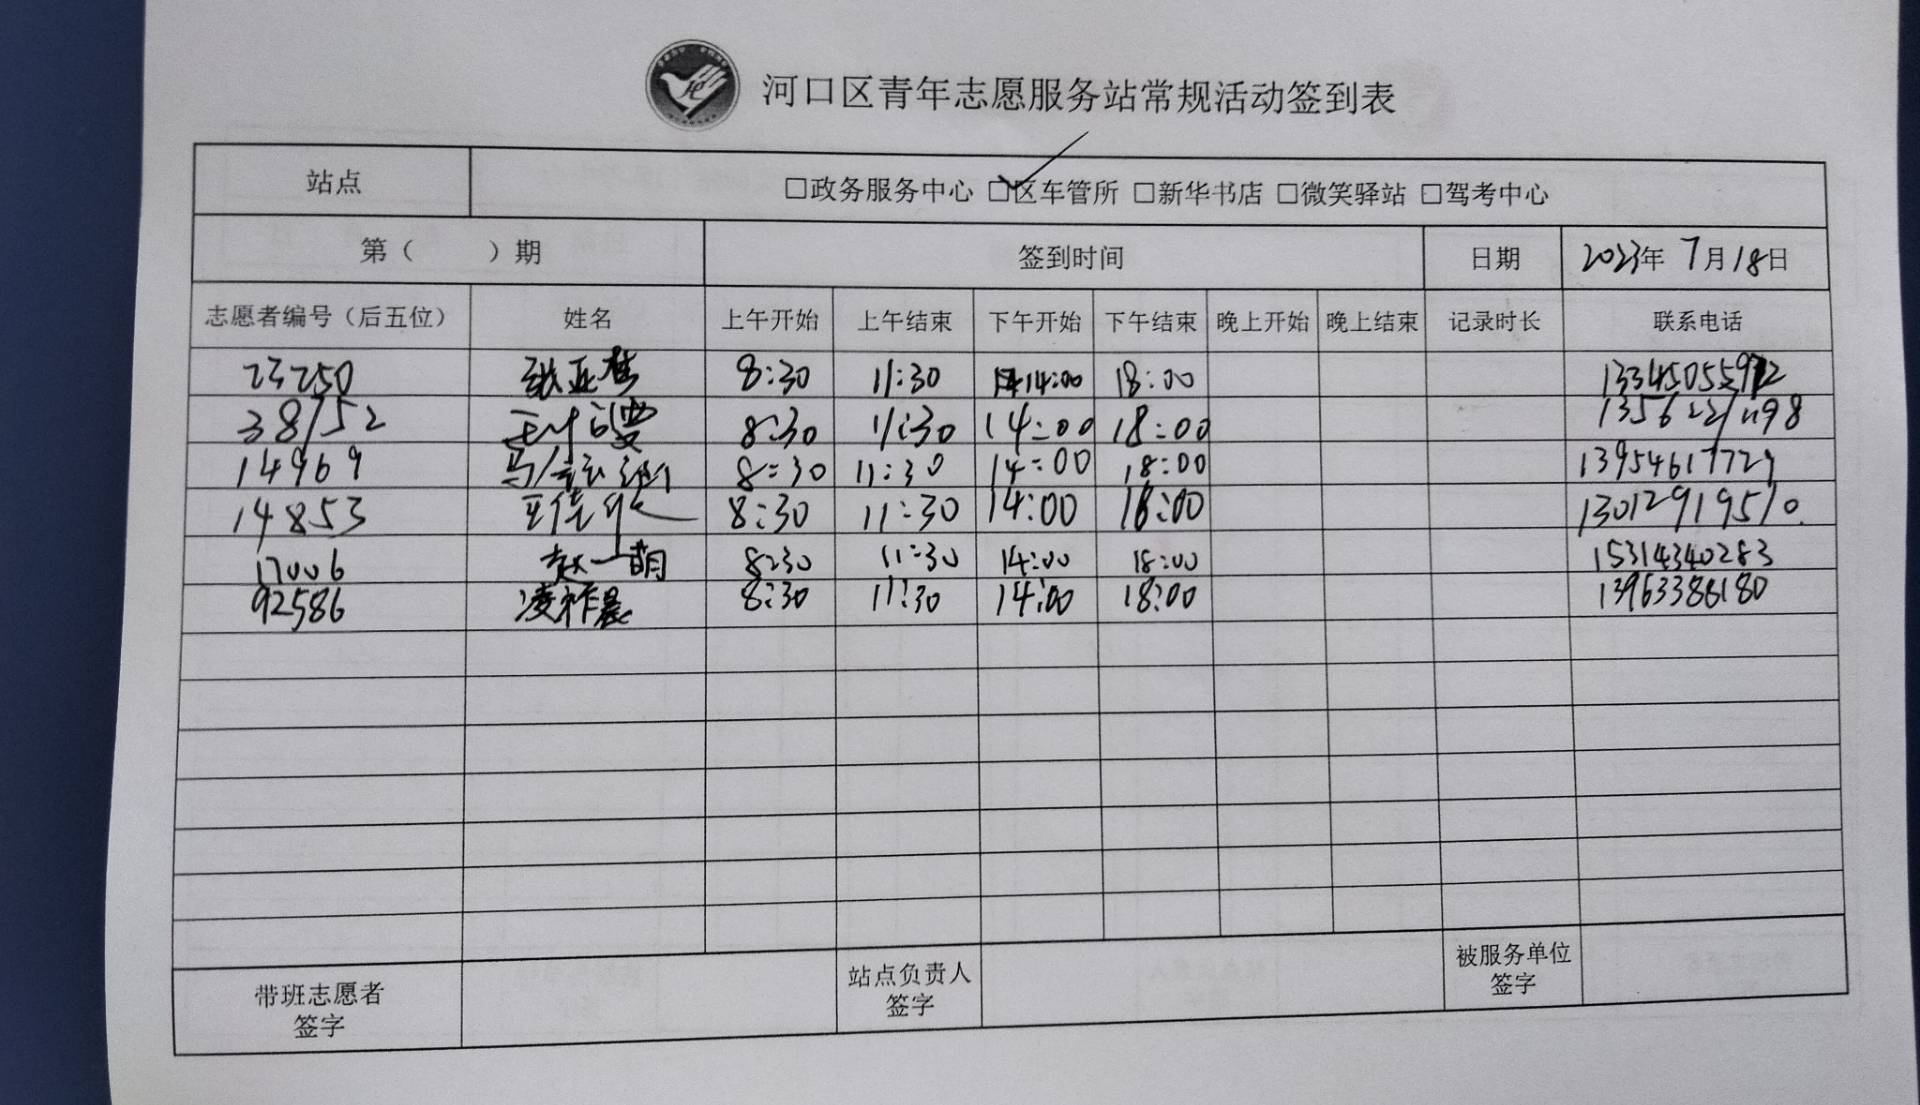 河口区青年志愿服务站常规活动签到表
站点 □政务服务中心 □区车管所 □新华书店 □微笑驿站 □驾考中心
第（ ）期 签到时间 日期 2023年 7月18日
志愿者编号（后五位） 姓名 上午开始 上午结束 下午开始 下午结束 晚上开始 晚上结束 记录时长 联系电话
23250 张亚 8:30 11:30 14:00 18:00
38752 8:30 11:30 14:00 18:00
14969 8:30 11:30 14:00 18:00
14853 王佳 8:30 11:30 14:00 18:00 13012919510
17006 赵一萌 8:30 11:30 14:00 18:00 15314340283
92586 凌祚晨 8:30 11:30 14:00 18:00 13963386180
带班志愿者
签字
站点负责人
签字
被服务单位
签字